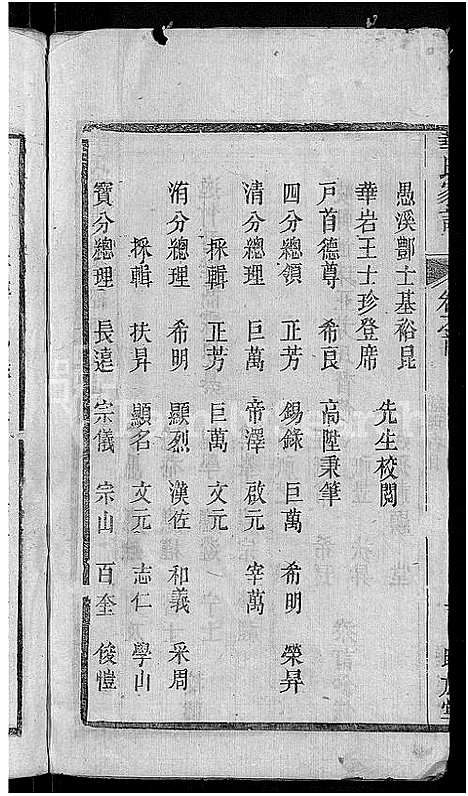 愚溪鄷士基裕昆
華岩王士珍登席
先生校閱
戸首德尊 希良 高陞秉筆
四分總領 正芳 錫錄 巨萬 希明 榮昇
清分總理 巨萬 帝澤 啟元 宰萬
採輯 正芳 巨萬 文元
洧分總理 希明 顯烈 漢佐 和義 采周
採輯 扶昇 顯名 文元 志仁 學山
寳分總理 長遠 宗儀 宗山 百奎 俊愷